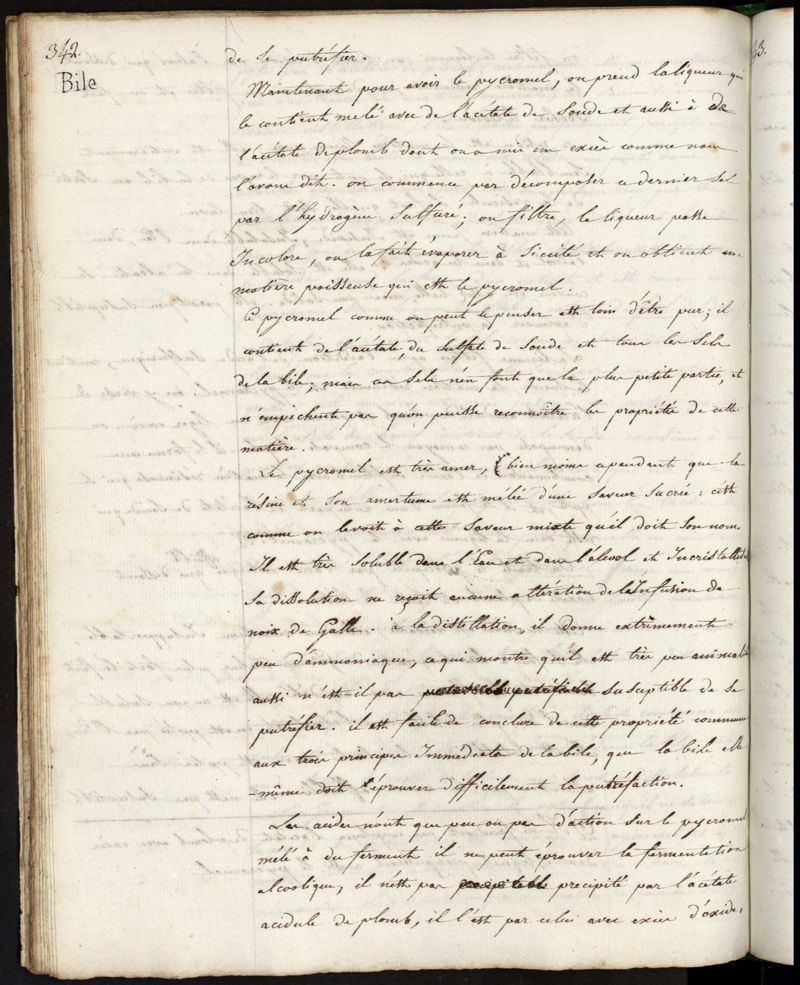 342.
Bile
de se putréfier.
Maintenant pour avoir le pycromel, on prend la liqueur qui
le contient melé avec de l'acétate de Soude et aussi à de
l'acétate de plomb dont on a mis un excès comme nous
l'avons dit. on commence par décomposer ce dernier sel
par l'hydrogène Sulfuré; on filtre, la liqueur passe
Incolore, on la fait évaporer à Siccité et on obtient une
matière poisseuse qui est le pycromel.
Ce pycromel comme on peut le penser est loin d'être pur; il
contient de l'acétate, du Sulfate de Soude et tous les Sels
de la bile; mais ces Sels n'en font que la plus petite partie, et
n'empêchent pas qu'on puisse reconnoître les propriétés de cette
matière.
Le pycromel est très amer, (bien moins cependant que la
résine et Son amertume est mélée d'une Saveur Sucrée: c'est
comme on le voit à cette Saveur mixte qu'il doit Son nom.
Il est très Soluble dans l'Eau et dans l'álcool et Incristallisable
Sa dissolution ne reçoit aucune altération de la Infusion de
noix de Galle. à la distillation, il donne extrêmement
peu d'ammoniaque, ce qui montre qu'il est très peu animalisé
aussi n'est-il pas susptible de se
putréfier. il est facile de conclure de cette propriété commune
aux trois principes Immédiats de la bile, que la bile elle
-même doit éprouver difficilement la putréfaction.
Les acides n'ont que peu ou pas d'action sur le pycromel
mélé à du ferment il ne peut éprouver la fermentation
alcoolique, il n'est pas precipité par l'acétate
acidule de plomb, il l'est par celui avec excès d'oxide,